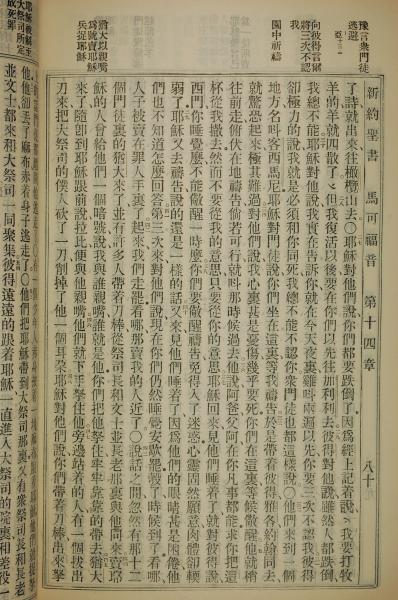 新約聖書 馬可福音 第十四章 八十
豫言衆門徒
逃避
向彼得言爾
將三次不認
我
園中祈禱
猶大以親嘴
為號賣耶穌
兵捉耶穌
大祭司所定
了詩就出來往橄欖山去○耶穌對他們說你們都要跌倒了因為經上記着說我要打牧
羊的羊就四散了但我復活以後要在你們以先往加利利去彼得對他說雖然人都跌倒
我總不能耶穌對他說我實在告訴你就在今天夜裏雞叫兩遍以先你要三次不認我彼得
卻極力的說我就是必須和你同死我總不能不認你衆門徒也都這樣說○他們來到一個
地方名叫客西馬尼耶穌對門徒說你們坐在這裏等我禱告於是帶着彼得雅各約翰同去
就驚恐起來極其難過對他們說我心裏甚是憂傷幾乎要死你們在這裏等候儆醒他就稍
往前走俯伏在地禱告倘若可行就叫那時候過去他說阿爸父阿在你凡事都能求你把這
杯從我撤去然而不要從我的意思只要從你的意思耶穌回來見他們睡着了就對彼得說
西門你睡覺麼不能儆醒一時麼你們要儆醒禱告免得入了迷惑心靈固然願意肉體卻軟
弱了耶穌又去禱告說的還是一樣的話又來見他們睡着了因為他們的眼睛甚是困倦他
們也不知道怎麼回答第三次來對他們說現在你們仍然睡覺安歇罷彀了時候到了看哪
人子被賣在罪人手裏了起來我們走罷看哪那賣我的人近了○說話之間忽然有那十二
個門徒裏的猶大來了並有許多人帶着刀棒從祭司長和文士並長老那裏與他同來賣耶
穌的人曾給他們一個暗號說我與誰親嘴誰就是他你們把他拏住牢牢靠靠的帶去猶大
來了隨卽到耶穌跟前說拉比便與他親嘴他們就下手拏住他旁邊站着的人有一個拔出
刀來把大祭司的僕人砍了一刀削掉了他一個耳朶耶穌對他們說你們帶着刀棒出來拏
他他卻丟了麻布赤着身子逃走了○他們把耶穌帶到大祭司那裏又有衆祭司長和長老
並文士都來和大祭司一同聚集彼得遠遠的跟着耶穌一直進入大祭司的院裏和差役一